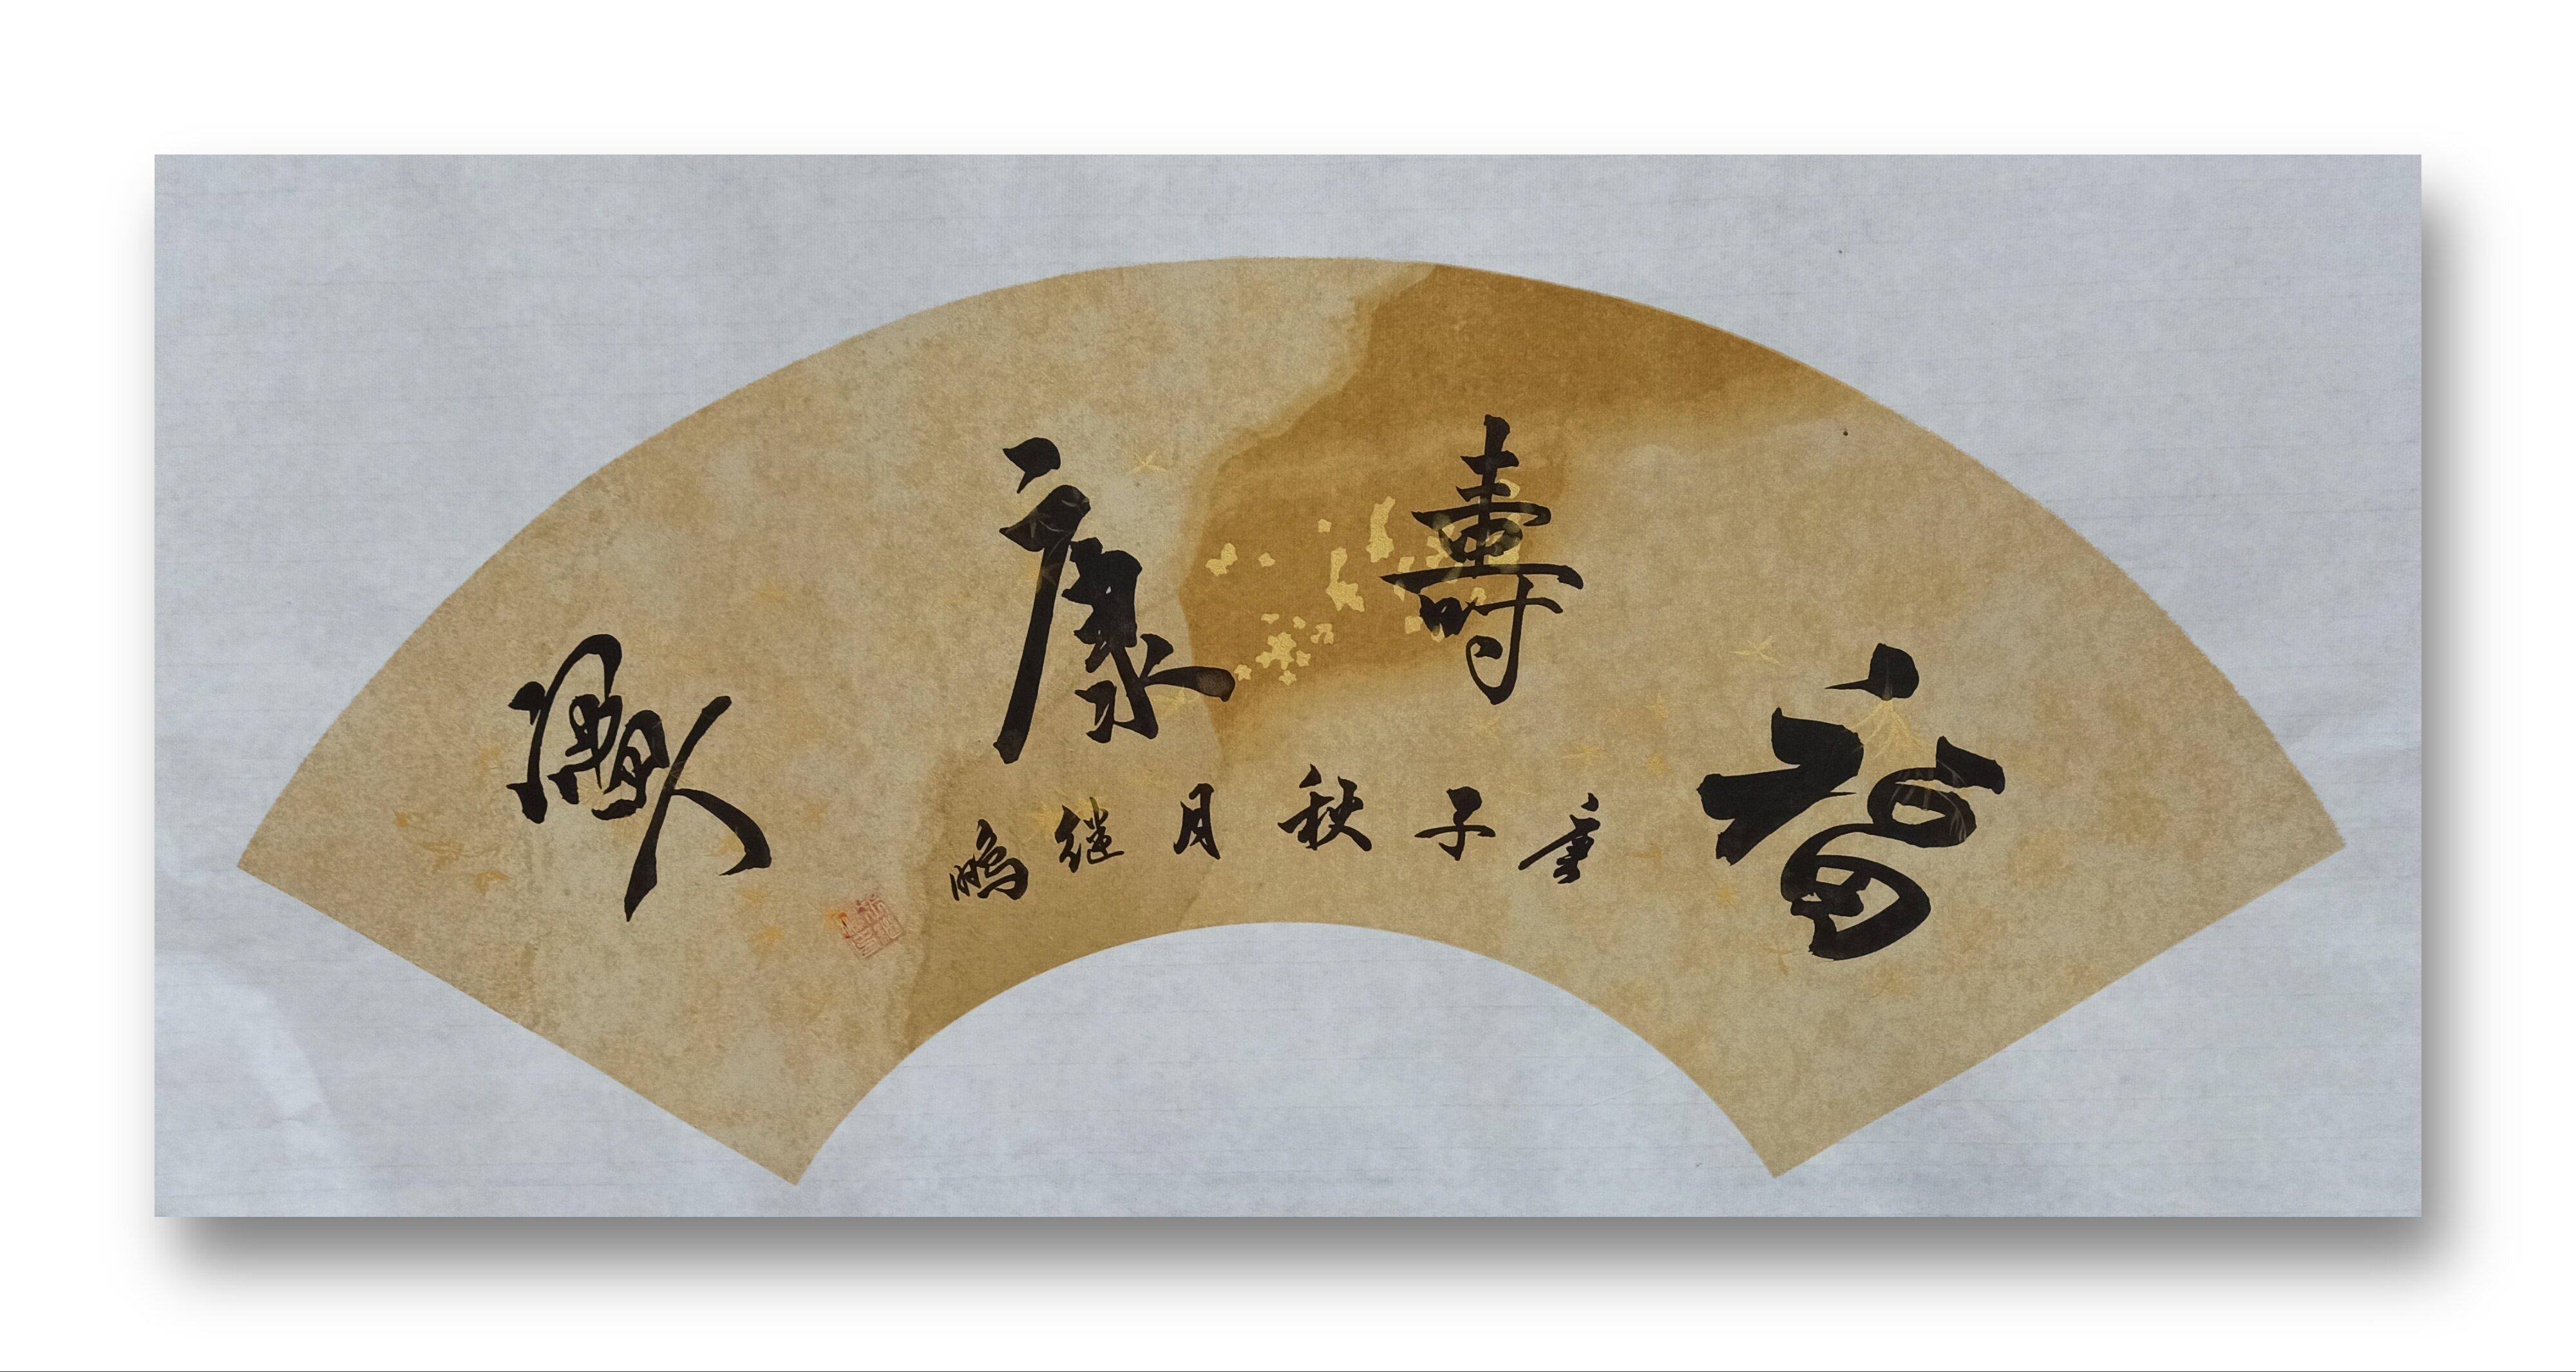 福壽康寧
庚子秋月继鹏